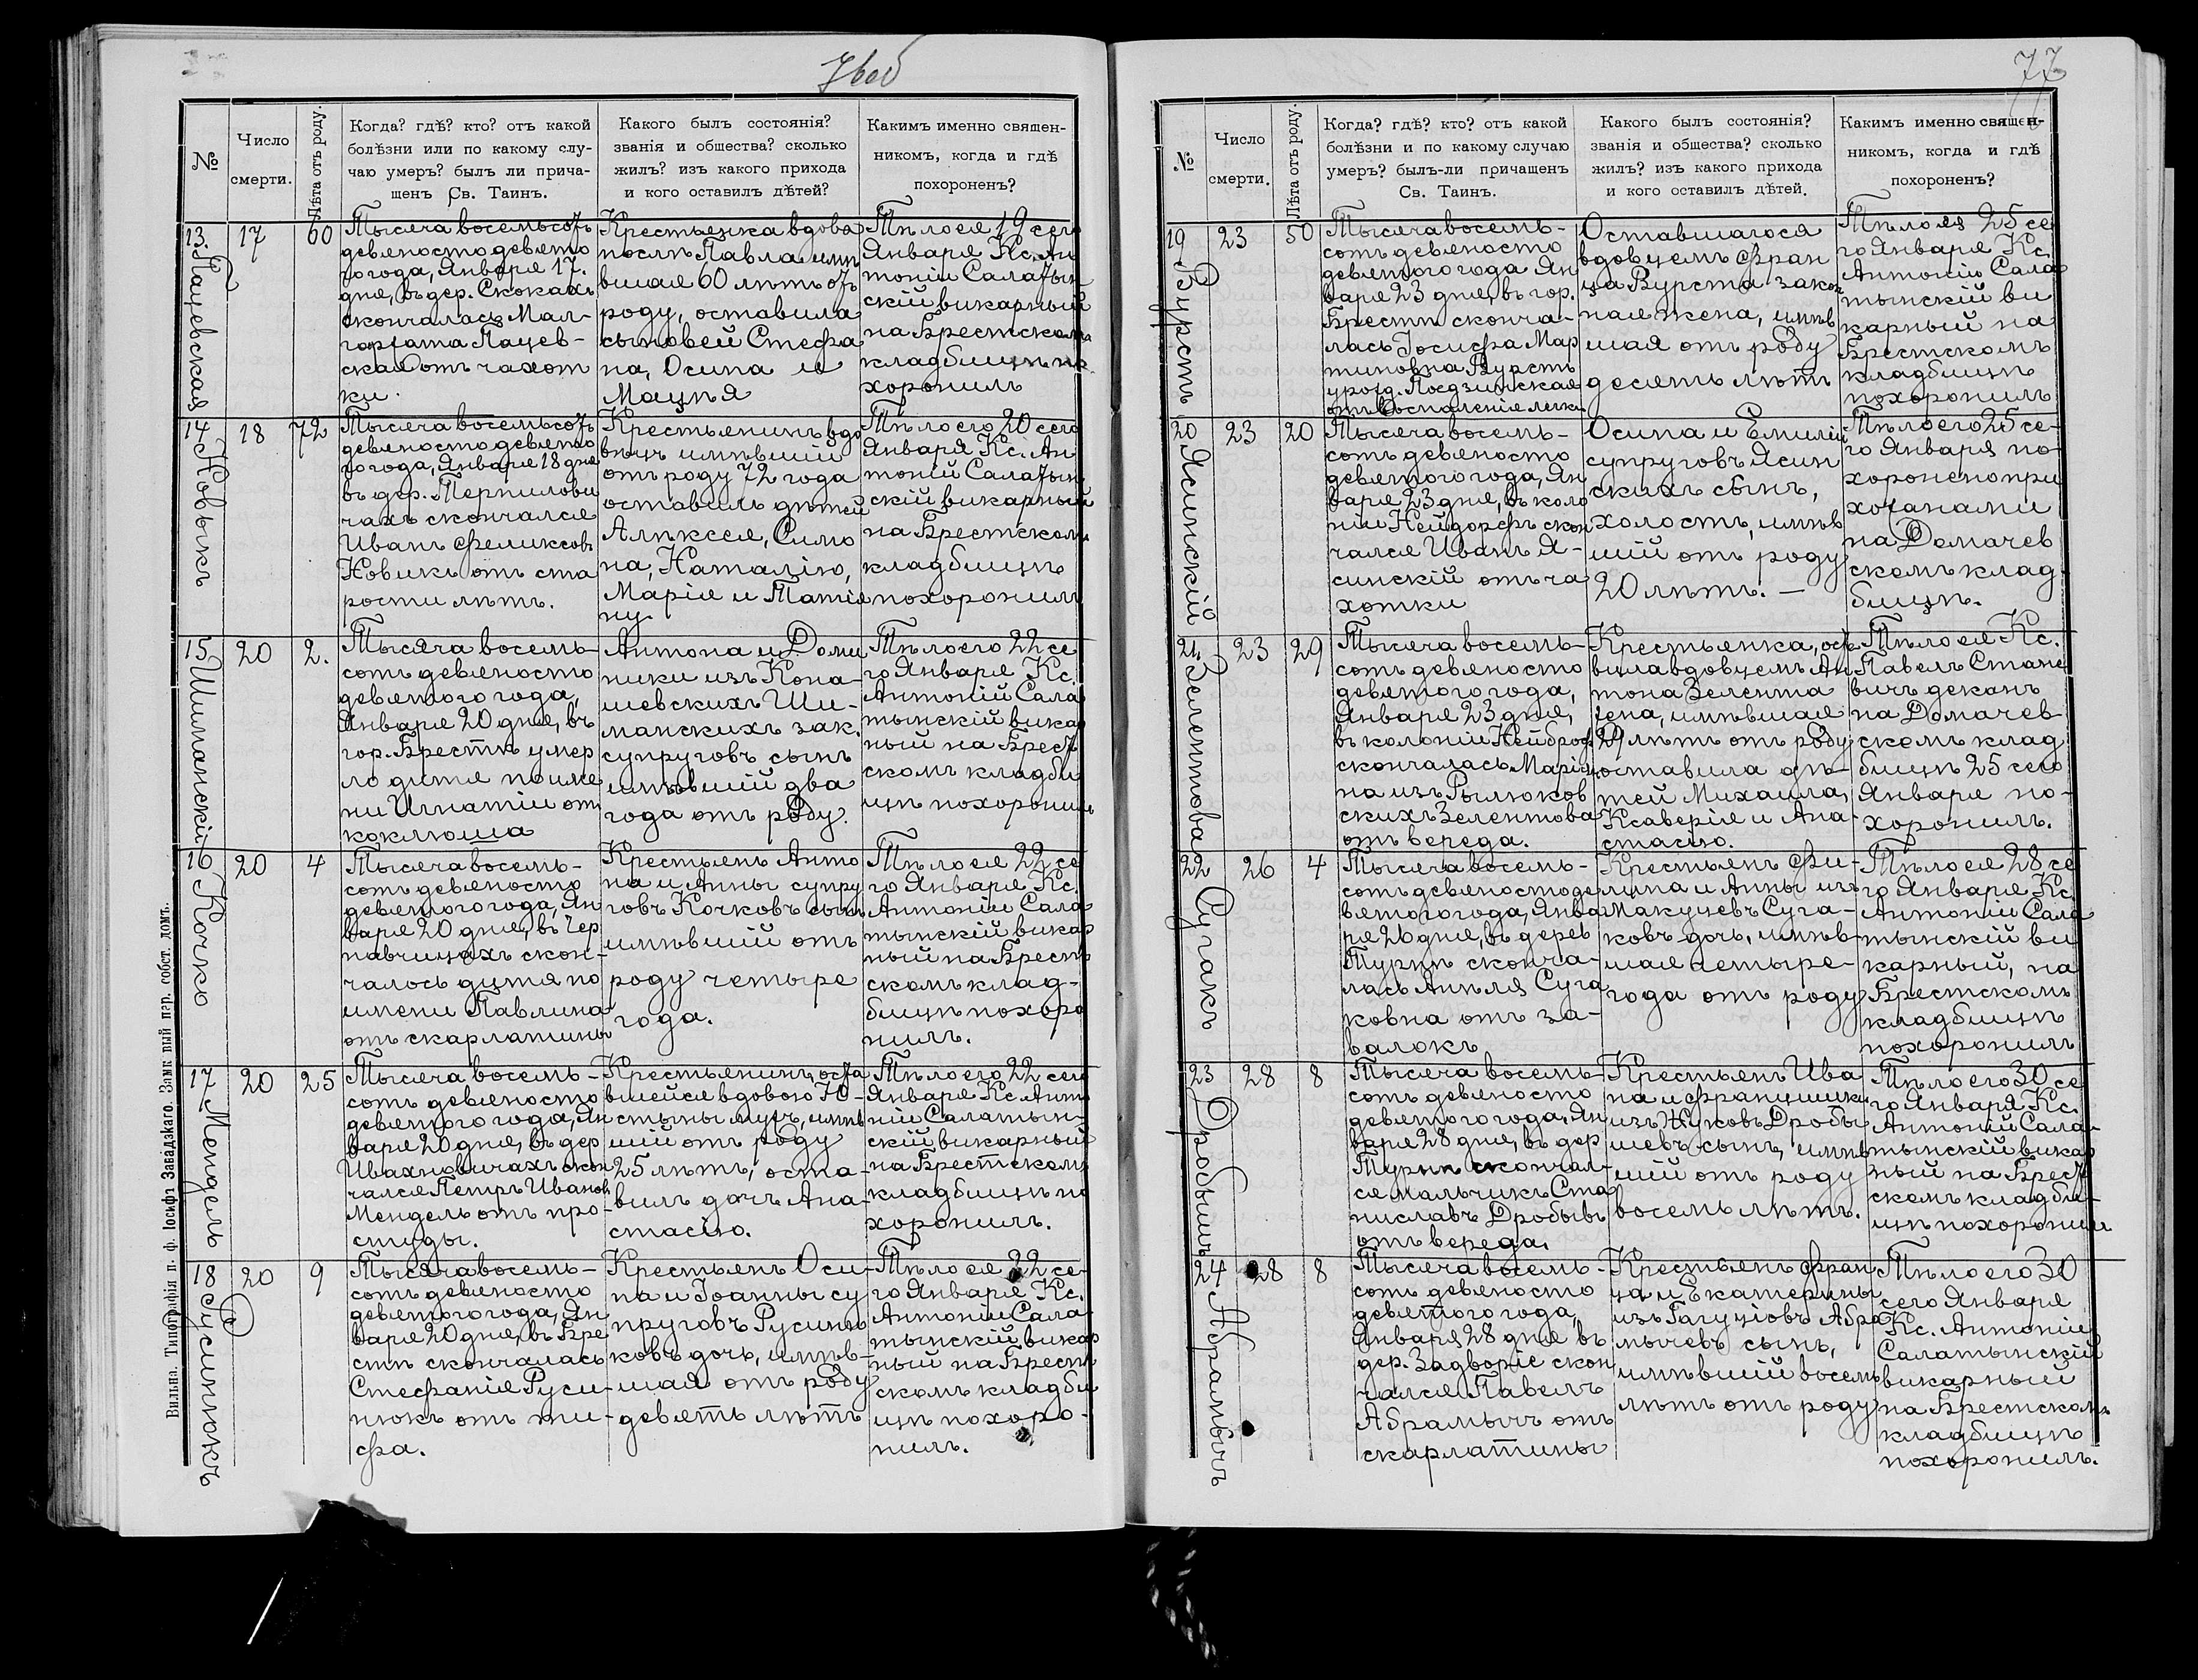 76об
№
Число
смерти.
Лѣта отъ роду.
Когда? гдѣ? кто? отъ какой
болѣзни или по какому слу-
чаю умеръ? былъ ли прича-
щенъ Св. Таинъ.
Какого былъ состоянія?
званія и общества? сколько
жилъ? изъ какого прихода
и кого оставилъ дѣтей?
Какимъ именно священ-
никомъ, когда и гдѣ
похороненъ?
13.
Пацевская
17
60
Тысяча восемьсотъ
девяносто девято
го года, Января 17.
дня, въ дер. Скокахъ
скончалась Мал-
горжата Пацев-
ская отъ чахот
ки.
Крестьянка вдова
послѣ Павла имѣ
вшая 60 лѣтъ отъ
роду, оставила
сыновей Стефа
на, Осипа и
Мацѣя
Тѣло ея 19 сего
Января Кс. Ан
тоній Салатын
скій викарный
на Брестскомъ
кладбищѣ по
хоронилъ
14
Новыкъ
18
72
Тысяча восемьсотъ
девяносто девято
го года, Января 18 дня
въ дер. Терпилови
чахъ скончался
Иванъ Феликсовъ
Новикъ отъ ста
рости лѣтъ.
Крестьянинъ вдо
вецъ имѣвшій
отъ роду 72 года
оставилъ дѣтей
Алексѣя, Симо
на, Наталію,
Марія и Татія
ну
Тѣло его 20 сего
Января Кс. Ан
тоній Салатын
скій викарный
на Брестскомъ
кладбищѣ
похоронилъ
15
Шиманскій
20
2.
Тысяча восемь-
сотъ девяносто
девятого года,
Января 20 дня, въ
гор. Брестѣ умер
ло дитя по име
ни Игнатій отъ
коклюша
Антона и Доми
ники изъ Кона-
шевскихъ Ши-
манскихъ зак.
супруговъ сынъ
имѣвшій два
года отъ роду.
Тѣло его 22 се
го Января Кс.
Антоній Сала
тынскій викар
ный на Брест
скомъ кладби
щѣ похоронилъ
16
Кочко
20
4
Тысяча восемь-
сотъ девяносто
девятого года, Ян
варя 20 дня, въ Чер
навчицахъ скон-
чалось дитя по
имени Павлина
отъ скарлатины
Крестьянъ Анто
на и Анны супру
говъ Кочковъ сынъ
имѣвшій отъ
роду четыре
года.
Тѣло ея 22 се
го Января Кс.
Антоній Сала
тынскій викар
ный на Брест
скомъ клад-
бищѣ похоро
нилъ.
17
Мендель
20
25
Тысяча восемь-
сотъ девяносто
девятого года, Ян
варя 20 дня, въ дер
Ивахновичахъ скон
чался Петръ Иванов
Мендель отъ про-
студы.
Крестьянинъ, оста
вшейся вдовою Ю-
стыны мужъ, имѣв
шій отъ роду
25 лѣтъ, оста-
вилъ дочь Ана-
стасію.
Тѣло его 22 сего
Января Кс. Анто
ній Салатын-
скій викарный
на Брестскомъ
кладбищѣ по
хоронилъ.
18
Русинюкъ
20
9
Тысяча восемь-
сотъ девяносто
девятого года, Ян
варя 20 дня, въ Бре
стѣ скончалась
Стефанія Руси-
нюкъ отъ ти-
фа.
Крестьянъ Оси-
па и Іоанны су
пруговъ Русиню
ковъ дочь, имѣв-
шая отъ роду
девять лѣтъ
Тѣло ея 22 се-
го Января Кс.
Антоній Сала
тынскій викар
ный на Брест
скомъ кладби
щѣ похоро-
нилъ.
Вильна. Типографія п. ф. Іосифъ Завадзкаго. Замк вый пэр. собст. домъ.
77
№
Число
смерти.
Лѣта отъ роду.
Когда? гдѣ? кто? отъ какой
болѣзни и по какому случаю
умеръ? былъ-ли причащенъ
Св. Таинъ.
Какого былъ состоянія?
званія и общества? сколько
жилъ? изъ какого прихода
и кого оставилъ дѣтей.
Какимъ именно священ-
никомъ, когда и гдѣ
похороненъ?
19
Вурстъ
23
50
Тысяча восемь-
сотъ девяносто
девятого года Ян
варя 23 дня, въ гор.
Брестѣ сконча-
лась Іосифа Мар
тиновна Вурстъ
урожд.
отъ воспаленія легки
Оставшагося
вдовцемъ Фран
ца Вурста закон
ная жена, имѣв
шая отъ роду
десять лѣтъ
Тѣло ея 25 се
го Января Кс.
Антоній Сала
тынскій ви
карный на
Брестскомъ
кладбищѣ
похоронилъ
20
Ясинскій
23
20
Тысяча восемь-
сотъ девяносто
девятого года, Ян
варя 23 дня, въ коло
ніи Нейдорфъ скон
чался Иванъ Я-
синскій отъ ча
хотки
Осипа и Емиліи
супруговъ Ясин
скихъ сынъ,
холостъ, имѣв
шій отъ роду
20 лѣтъ. —
Тѣло его 25 се-
го Января по-
хоронено при
хожанами
на Домачев
скомъ клад-
бищѣ.
21
Зелентова
23
29
Тысяча восемь-
сотъ девяносто
девятого года,
Января 23 дня,
въ колоніи Нейброф
скончалась Марія
на изъ Рылюков
скихъ Зелентова
отъ вереда.
Крестьянка, оста
вила вдовцемъ Ан
тона Зелента
жена, имѣвшая
29 лѣтъ отъ роду
оставила дѣ-
тей Михаила,
Ксаверія и Ана-
стасію.
Тѣло ея Кс.
Павелъ Стане
вичъ деканъ
на Домачев
скомъ клад
бищѣ 25 сего
Января по-
хоронилъ.
22
Сугакъ
26
4
Тысяча восемь-
сотъ девяносто де
вятого года, Янва
ря 26 дня, въ дерев
Турнѣ сконча-
лась Анѣля Суга
ковна отъ за-
валокъ
Крестьянъ Фи-
липа и Анны изъ
Макуцевъ Суга-
ковъ дочь, имѣв-
шая четыре-
года отъ роду
Тѣло ея 28 се
го Января Кс.
Антоній Сала
тынскій ви
карный, на
Брестскомъ
кладбищѣ
похоронилъ
23
Дробышъ
28
8
Тысяча восемь-
сотъ девяносто
девятого года, Ян
варя 28 дня, въ дер
Турнѣ скончал-
ся мальчикъ Ста
ниславъ Дробывъ
отъ вереда.
Крестьянъ Ива
на и Францишки
изъ Жуковъ Дробы
шевъ сынъ, имѣв
шій отъ роду
восемь лѣтъ.
Тѣло его 30 се
го Января Кс.
Антоній Сала-
тынскій викар
ный на Брест
скомъ кладби-
щѣ похоронилъ
24
Абрамычъ
28
8
Тысяча восемь-
сотъ девяносто
девятого года,
Января 28 дня въ
дер. Задворіе скон
чался Павелъ
Абрамычъ отъ
скарлатины
Крестьянъ Фран
ца и Екатерины
изъ Гагуціовъ Абра
мычевъ сынъ,
имѣвшій восемь
лѣтъ отъ роду
Тѣло его 30
сего Января
Кс. Антоній
Салатынскій
викарный
на Брестскомъ
кладбищѣ
похоронилъ.